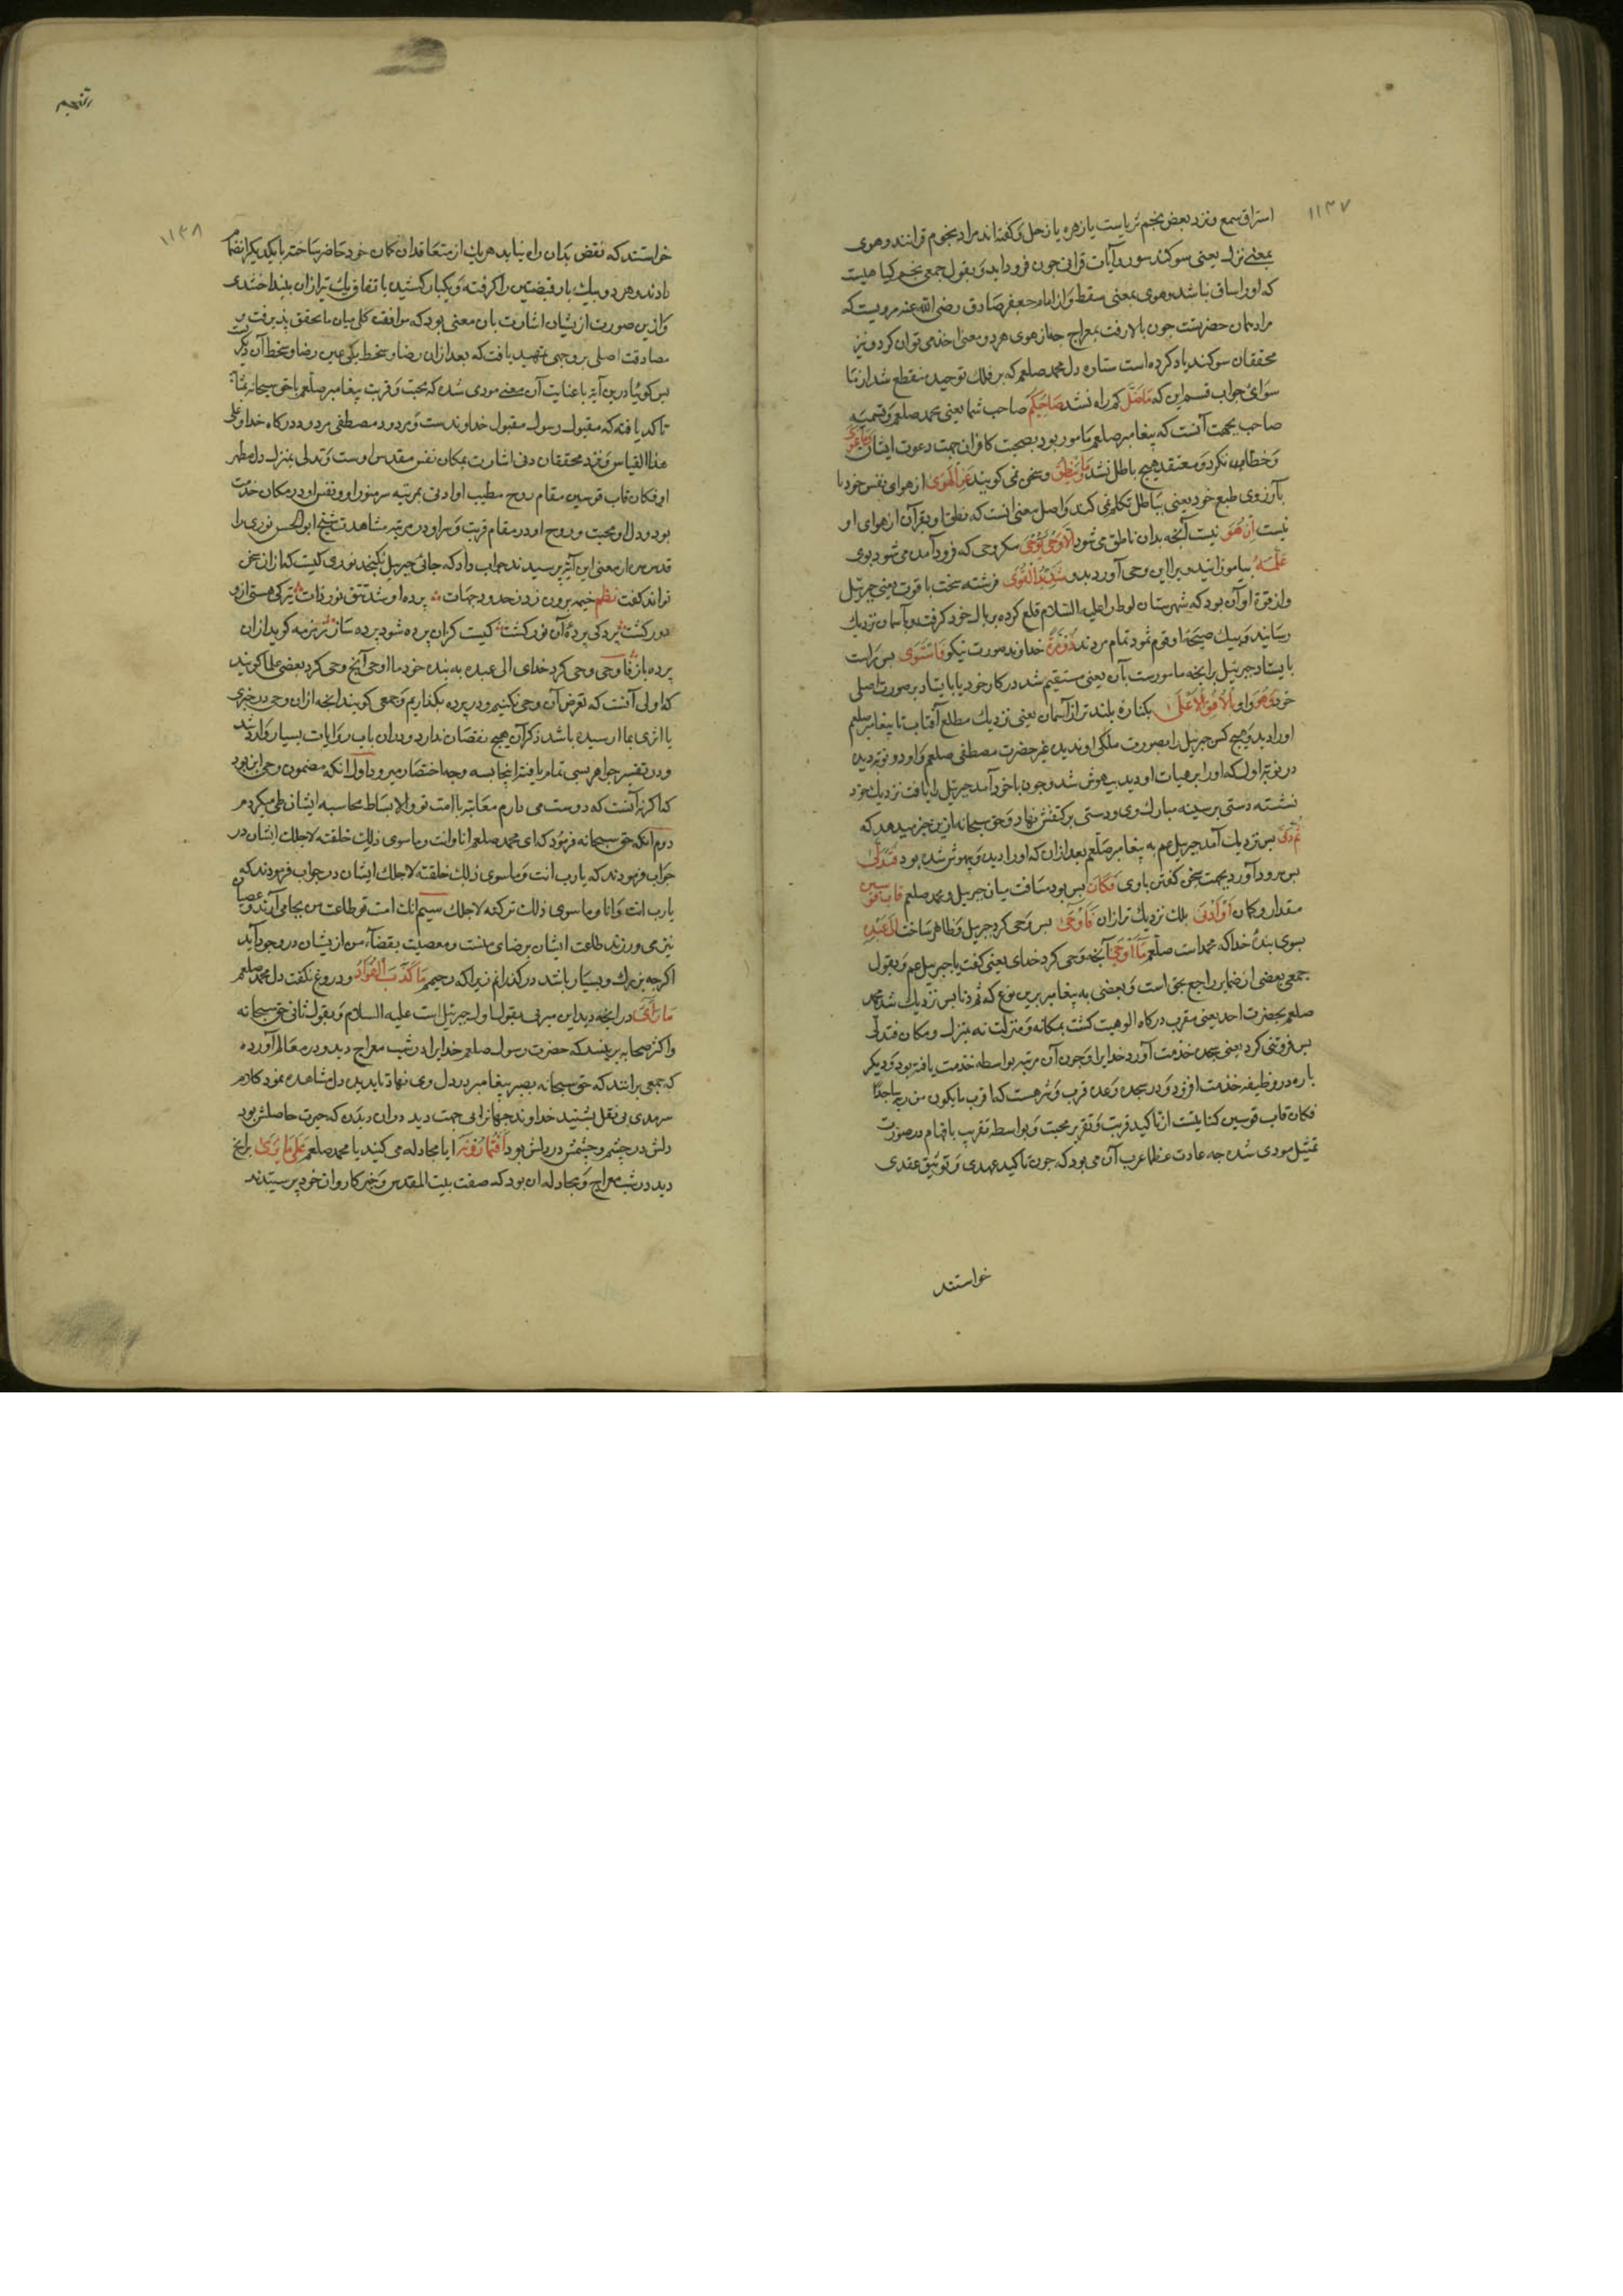 ۱۱۳۷
استراق سمع ونزد بعض نجم ثریاست یا زهره یا زحل وکفته اند مراد نجوم قرانند وهوی
بمعنی نزل یعنی سوکند بسور وآیات قرانی چون فرود اید وبقول جمعی نجم کیاهیست
که اورا ساق نباشد وهوی بمعنی سقط واز امام جعفر صادق رضی الله عنه مرویست که
مراد حضرتست چون بالا رفت بمعراج چه از هوی هر دو معنی اخذ می توان کرد ونیز
محققان سوکند یاد کرده است ستاره دل محمد صلعم که بر فلک توحید منقطع شد از ما
سوای جواب قسم این که مَا ضَلَّ کم راه نشد صَاحِبُکُم صاحب شما یعنی محمد صلعم وتسمیه
صاحب بجهت آنست که پیغامبر صلعم مامور بود بصحبت کافران جهت دعوت ایشان وَمَا غَوَی
وخطا نکرد ومعتقد هیچ باطل نشد وَمَا یَنطِقُ وسخن نمی کوید عَنِ الْهَوَی از هوای نفس خود یا
بآرزوی طبع خود یعنی بباطل تکلم نمی کند واصل معنی انست که نطق او بقرآن از هوای او
نیست اِنْ هُوَ نیست آنچه بدان ناطق می شود اِلَّا وَحْیٌ یُوحَی مکر وحی که فرود آمده می شود بوی
عَلَّمَهُ بیاموزانید ویرا این وحی آورد بدو شَدِیدُ الْقُوَی فرشته سخت با قوت یعنی جبرئیل
واز قوة او آن بود که شهرستان لوط را علیه السلام قلع کرده بر بال خود کرفت وبآسمان نزدیک
رسانید وبیک صیحه او قوم ثمود تمام مردند ذُو مِرَّةٍ خداوند صورت نیکو فَاسْتَوَی پس راست
بایستاد جبرئیل برانچه مامورست بآن یعنی مستقیم شد در کار خود یا بایستاد بر صورت اصلی
خود وَهُوَ واو بِالْاُفُقِ الْاَعْلَی بکناره بلند تر از آسمان یعنی نزدیک مطلع آفتاب تا پیغامبر صلعم
اورا دید وهیچ کس جبرئیل را بصورت ملکی او ندیده غیر حضرت مصطفی صلعم واو دو نوبت دیده
در نوبة اول که اورا بر هیات او دید بیهوش شد وچون با خود آمد جبرئیل را یافت نزدیک خود
نشسته دستی بر سینه مبارک وی ودستی بر کتفش نهاد وحق سبحانه ازین خبر میدهد که
ثُمَّ دَنَی پس نزدیک آمد جبریل عم به پیغامبر صلعم بعد ازان که اورا دید وبیهوش شده بود فَتَدَلَّی
پس فرود آورد بجهت سخن کفتن باوی فَکَانَ پس بود مسافت میان جبریل ومحمد صلعم قَابَ قَوْسَیْنِ
مقدار دو کمان اَوْ اَدْنَی بلک نزدیک تر ازان فَاَوْحَی پس وحی کرد جبریل وظاهر ساخت اِلَی عَبْدِهِ
بسوی بنده خدا که محمد است صلعم مَا اَوْحَی آنچه وحی کرد خدای یعنی کفت با جبریل عم وبقول
جمعی بعضی از ضمایر راجع بحق است وبعضی به پیغامبر برین نوع که ثم دنا پس نزدیک شد محمد
صلعم بحضرت احد یعنی مقرب درکاه الوهیت کشت بمکانه ومنزلت نه بمنزل ومکان فتدلی
پس فروتنی کرد یعنی سجده خدمت آورد خدایرا وچون آن مرتبه بواسطه خدمت یافته بود ودیکر
باره در وظیفه خدمت افزود ودر سجده وعده قرب ومژدهست که اقرب ما یکون من ربه ساجدًا
فکان قاب قوسین کنایتست از تاکید قربت وتقریر محبت وبواسطه تقریب بافهام در صورت
تمثیل مودی شده چه عادت عظما عرب آن می بود که چون تاکید عهدی وتوثیق عقدی
خواستند
۱۱۳۸
خواستند که نقض بدان راه نیابد هر یک از متعاقدان کمان خود حاضر ساخته با یکدیکر انضمام
دادند وهر دو بیک بار قبضتین را کرفته ویکبار کشیده باتفاق یک تیر ازان بینداختندی
وازین صورت ازیشان اشارت بان معنی بود که موافقة کلی میان ما تحقق پذیرفت و
مصادقت اصلی بر وجهی تمهید یافت که بعد ازان رضا وسخط یکی عین رضا وسخط آن دیکریست
پس کوئیا درین آیة باعنایت آن معنی مودی شد که محبت وقربت پیغامبر صلعم باحق سبحانه بمثابة
تاکد یافته که مقبول رسول مقبول خداوندست ومردود مصطفی مردود درکاه خدا وعلی
هذا القیاس ونزد محققان دنی اشارت بمکان نفس مقدس اوست وتدلی بمنزله دل مطهر
او فکان قاب قوسین مقام روح مطیب او ادنی بمرتبه سر منور او ونفس او در مکان خدمت
بود ودل او محبت وروح او در مقام قربت وسر او در مرتبه مشاهدت شیخ ابو الحسن نوری را
قدس سره از معنی این آیة پرسیدند جواب داد که جائی جبریل نکنجد نوری کیست که ازان سخن
تواند کفت نظم خیمه برون زد زحدود جهات ؞ پرده او شد تتق نور ذات ؞ تیرکی هستی ازو
دور کشت ؞ پردکی پرده آن نور کشت ؞ کیست کزان پرده شود پرده ساز ؞ زمزمه کوید ازان
پرده باز ؞ فاوحی وحی کرد خدای الی عبده به بنده خود ما اوحی آنچ وحی کرد بعضی علما کویند
که اولی آنست که تعرض آن وحی نکنیم ودر پرده بکذاریم وجمعی کویند انچه ازان وحی در خبری
یا اثری بما رسیده باشد ذکر آن هیچ نقصان ندارد ودران باب روایات بسیار وارد شد
ودر تفسیر جواهر بسی تمام یافته اینجا بسه وجه اختصار میرود اول انکه مضمون وحی این بود
که اکر نه آنست که دوست می دارم معاتبه با امت تو والا بساط محاسبه ایشان طی میکردم
دوم آنکه حق سبحانه فرمود که ای محمد صلعم انا وانت وما سوی ذلک خلقته لاجلک ایشان در
جواب فرمودند که یارب انت وما سوی ذلک خلقته لاجلک ایشان در جواب فرمودند که
یارب انت وانا وما سوی ذلک ترکته لاجلک سیم انک امت تو طاعت من بجامی آرند وعصیان
نیز می ورزند طاعت ایشان برضای منست ومعصیت بقضاء من ازیشان در وجود آید
اکرچه بزرک وبسیار باشد در کذرانم زیرا که رحیمم مَا کَذَبَ الْفُؤَادُ ودروغ نکفت دل محمد صلعم
مَا رَاَی در انچه دید این مریی بقول اول جبرئیل است علیه السلام وبقول ثانی حق سبحانه
واکثر صحابه برینند که حضرت رسول صلعم خدایرا در شب معراج دید ودر معالم آورده
که جمعی برانند که حق سبحانه بصر پیغامبر در دل وی نهاد تا بدیده دل مشاهده نمود کلام
سرمدی بی نقل بشنید خداوند جهانرا بی جهت دید دران دیدن که حیرت حاصلش بود
دلش در چشم وچشمش در دلش بود اَفَتُمَارُونَهُ ایا مجادله می کنید با محمد صلعم عَلَی مَا یَرَی برانچ
دید در شب معراج ومجادله ان بود که صفت بیت المقدس وخبر کاروان خود پرسیدند